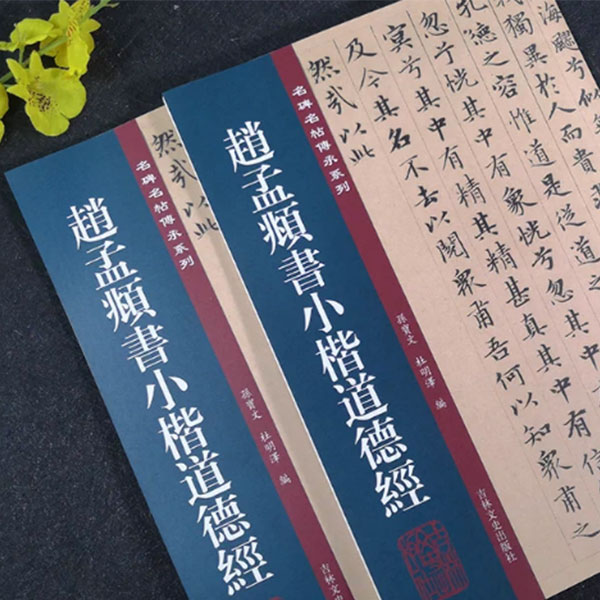 海飂兮似
我獨異於人而貴
孔德之容惟道是從道之
忽兮恍其中有象恍兮忽其中有
冥兮其中有精其精甚真其中有信
及今其名不去以閱衆甫吾何以知衆甫之
然哉以此
名碑名帖傳承系列
趙孟頫書小楷道德經
孫寶文 杜明澤 編
吉林文史出版社
然哉以此
名碑名帖傳承系列
趙孟頫書小楷道德經
孫寶文 杜明澤 編
吉林文史出